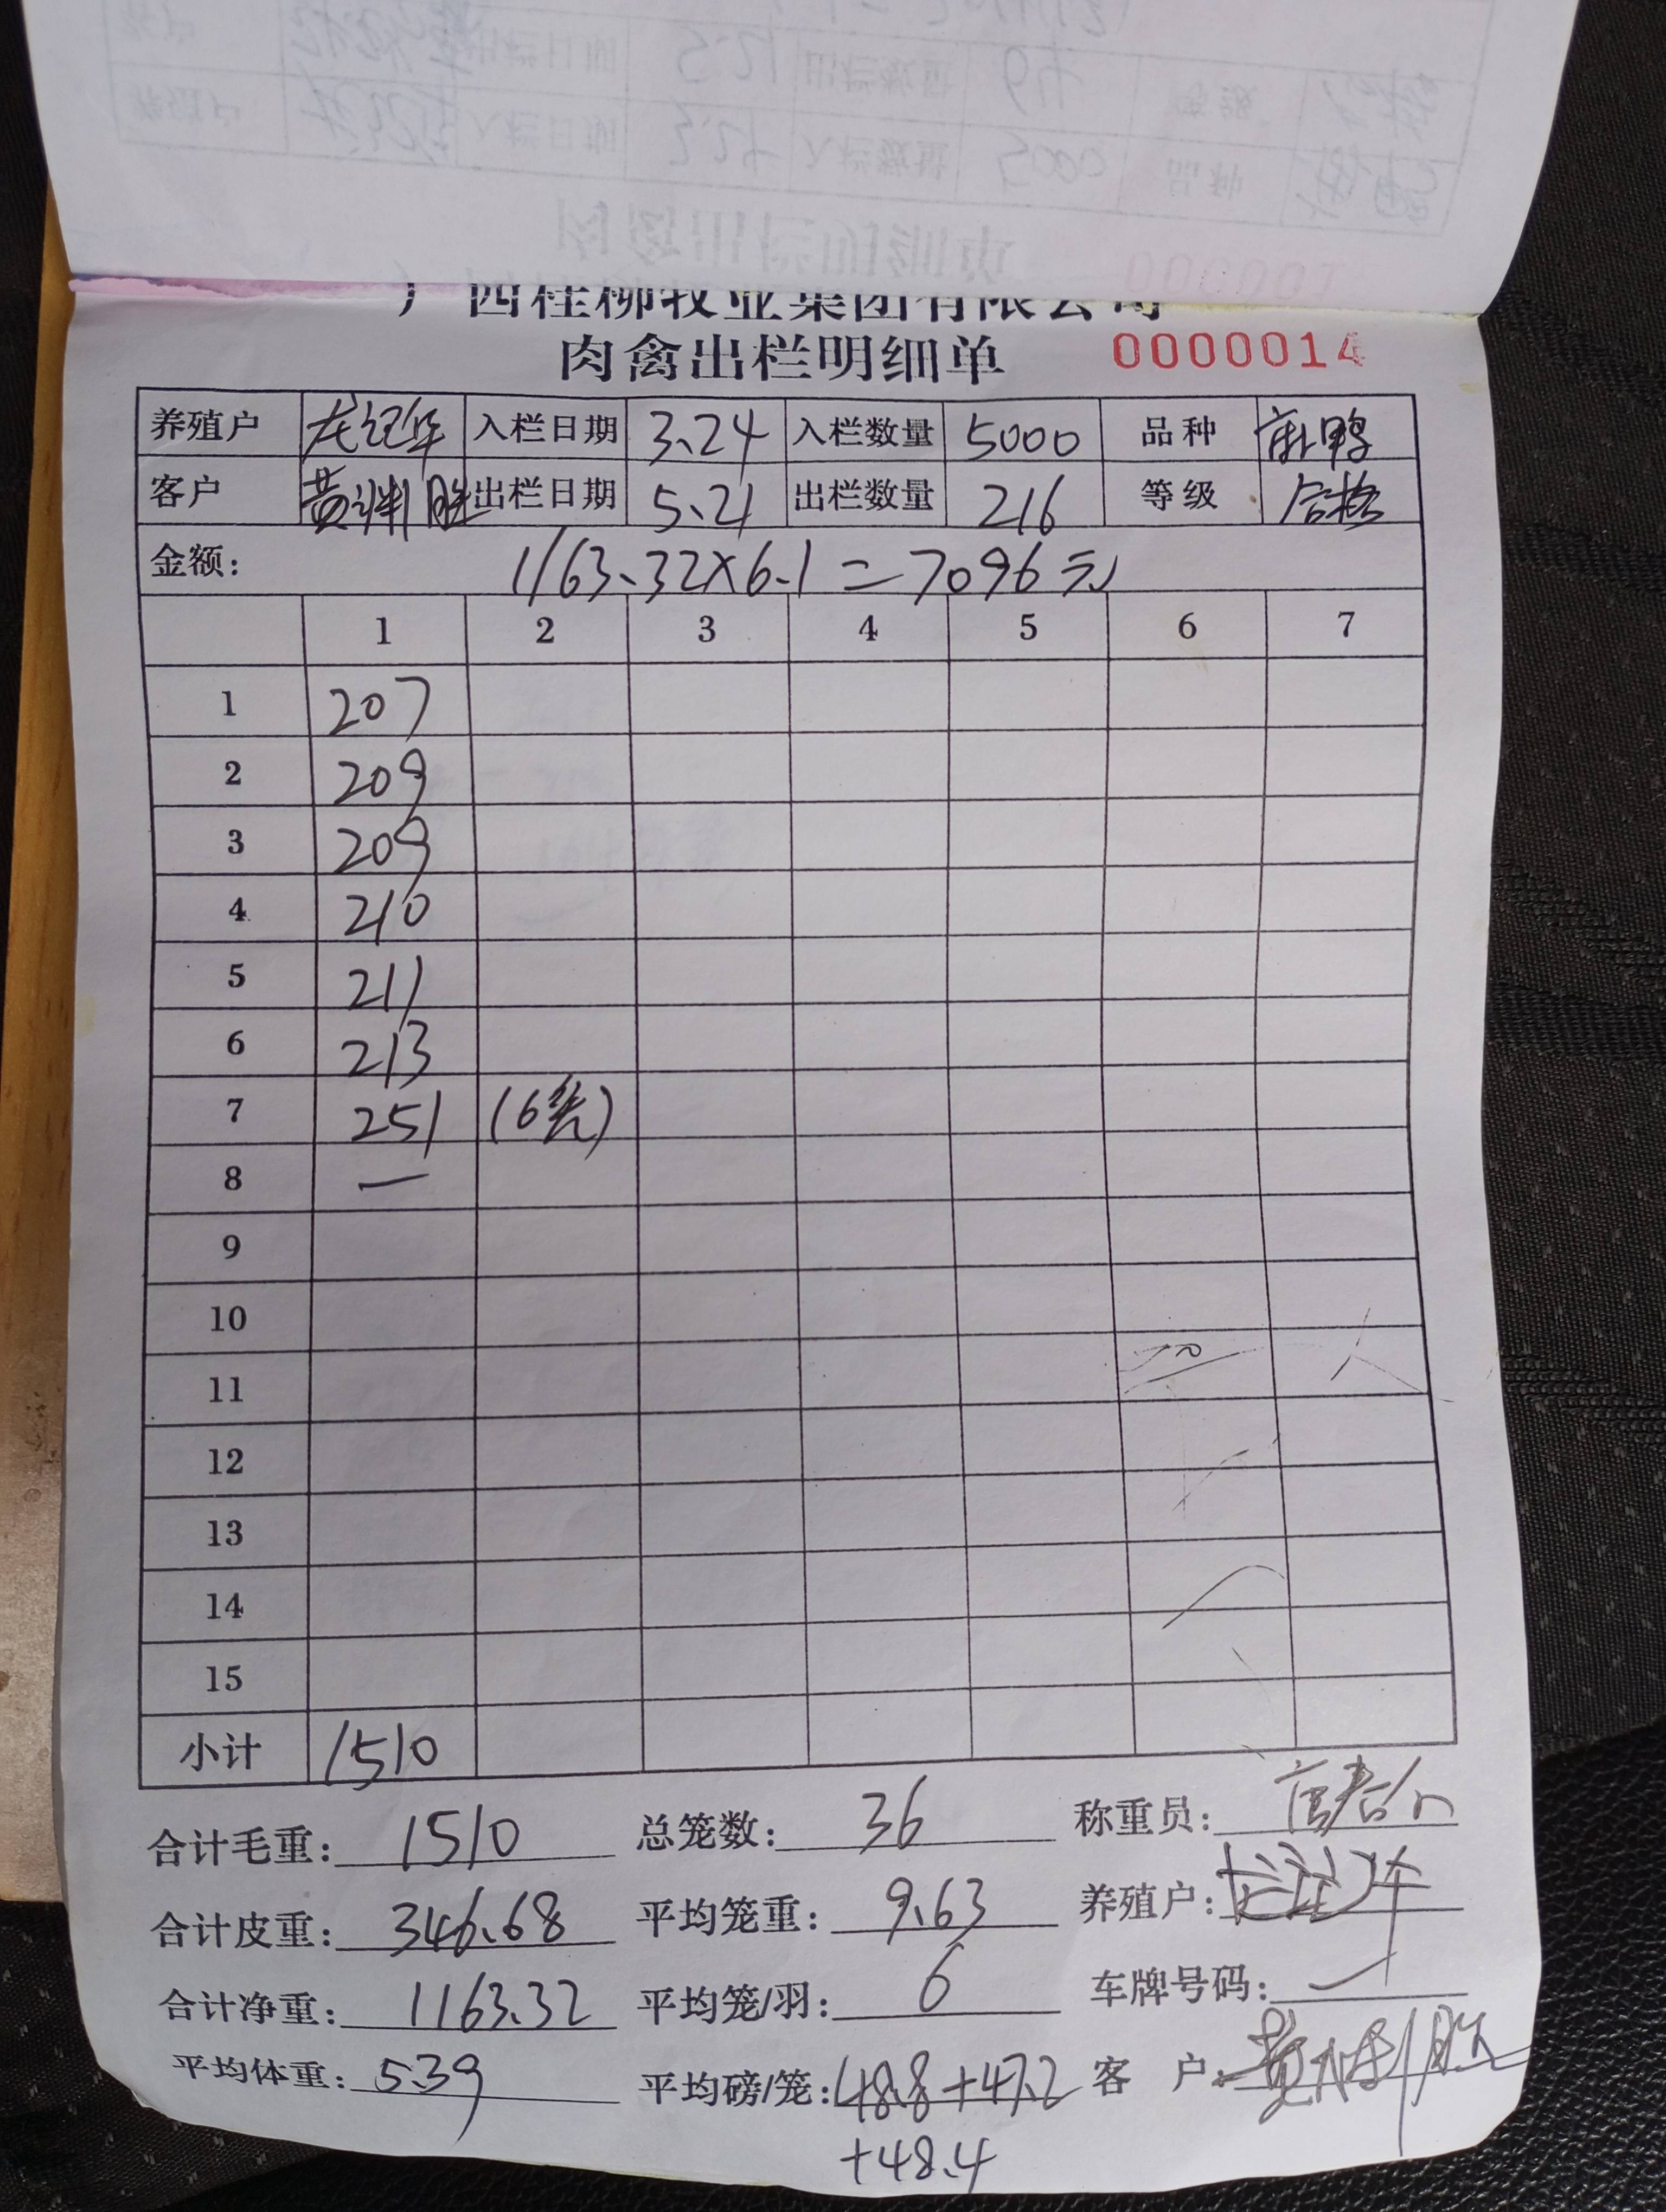 广西桂柳牧业集团有限公司
肉禽出栏明细单 0000014
养殖户 龙纪华 入栏日期 3.24 入栏数量 5000 品种
客户 出栏日期 5.21 出栏数量 216 等级 合格
金额: 1163.32×6.1=7096元
1 2 3 4 5 6 7
1 207
2 209
3 209
4 210
5 211
6 213
7 251 (6笼)
8 —
9
10
11
12
13
14
15
小计 1510
合计毛重: 1510 总笼数: 36 称重员:
合计皮重: 346.68 平均笼重: 9.63 养殖户:
合计净重: 1163.32 平均笼/羽: 6 车牌号码:
平均体重: 5.39 平均磅/笼: 48.8+47.2 客户:
+48.4